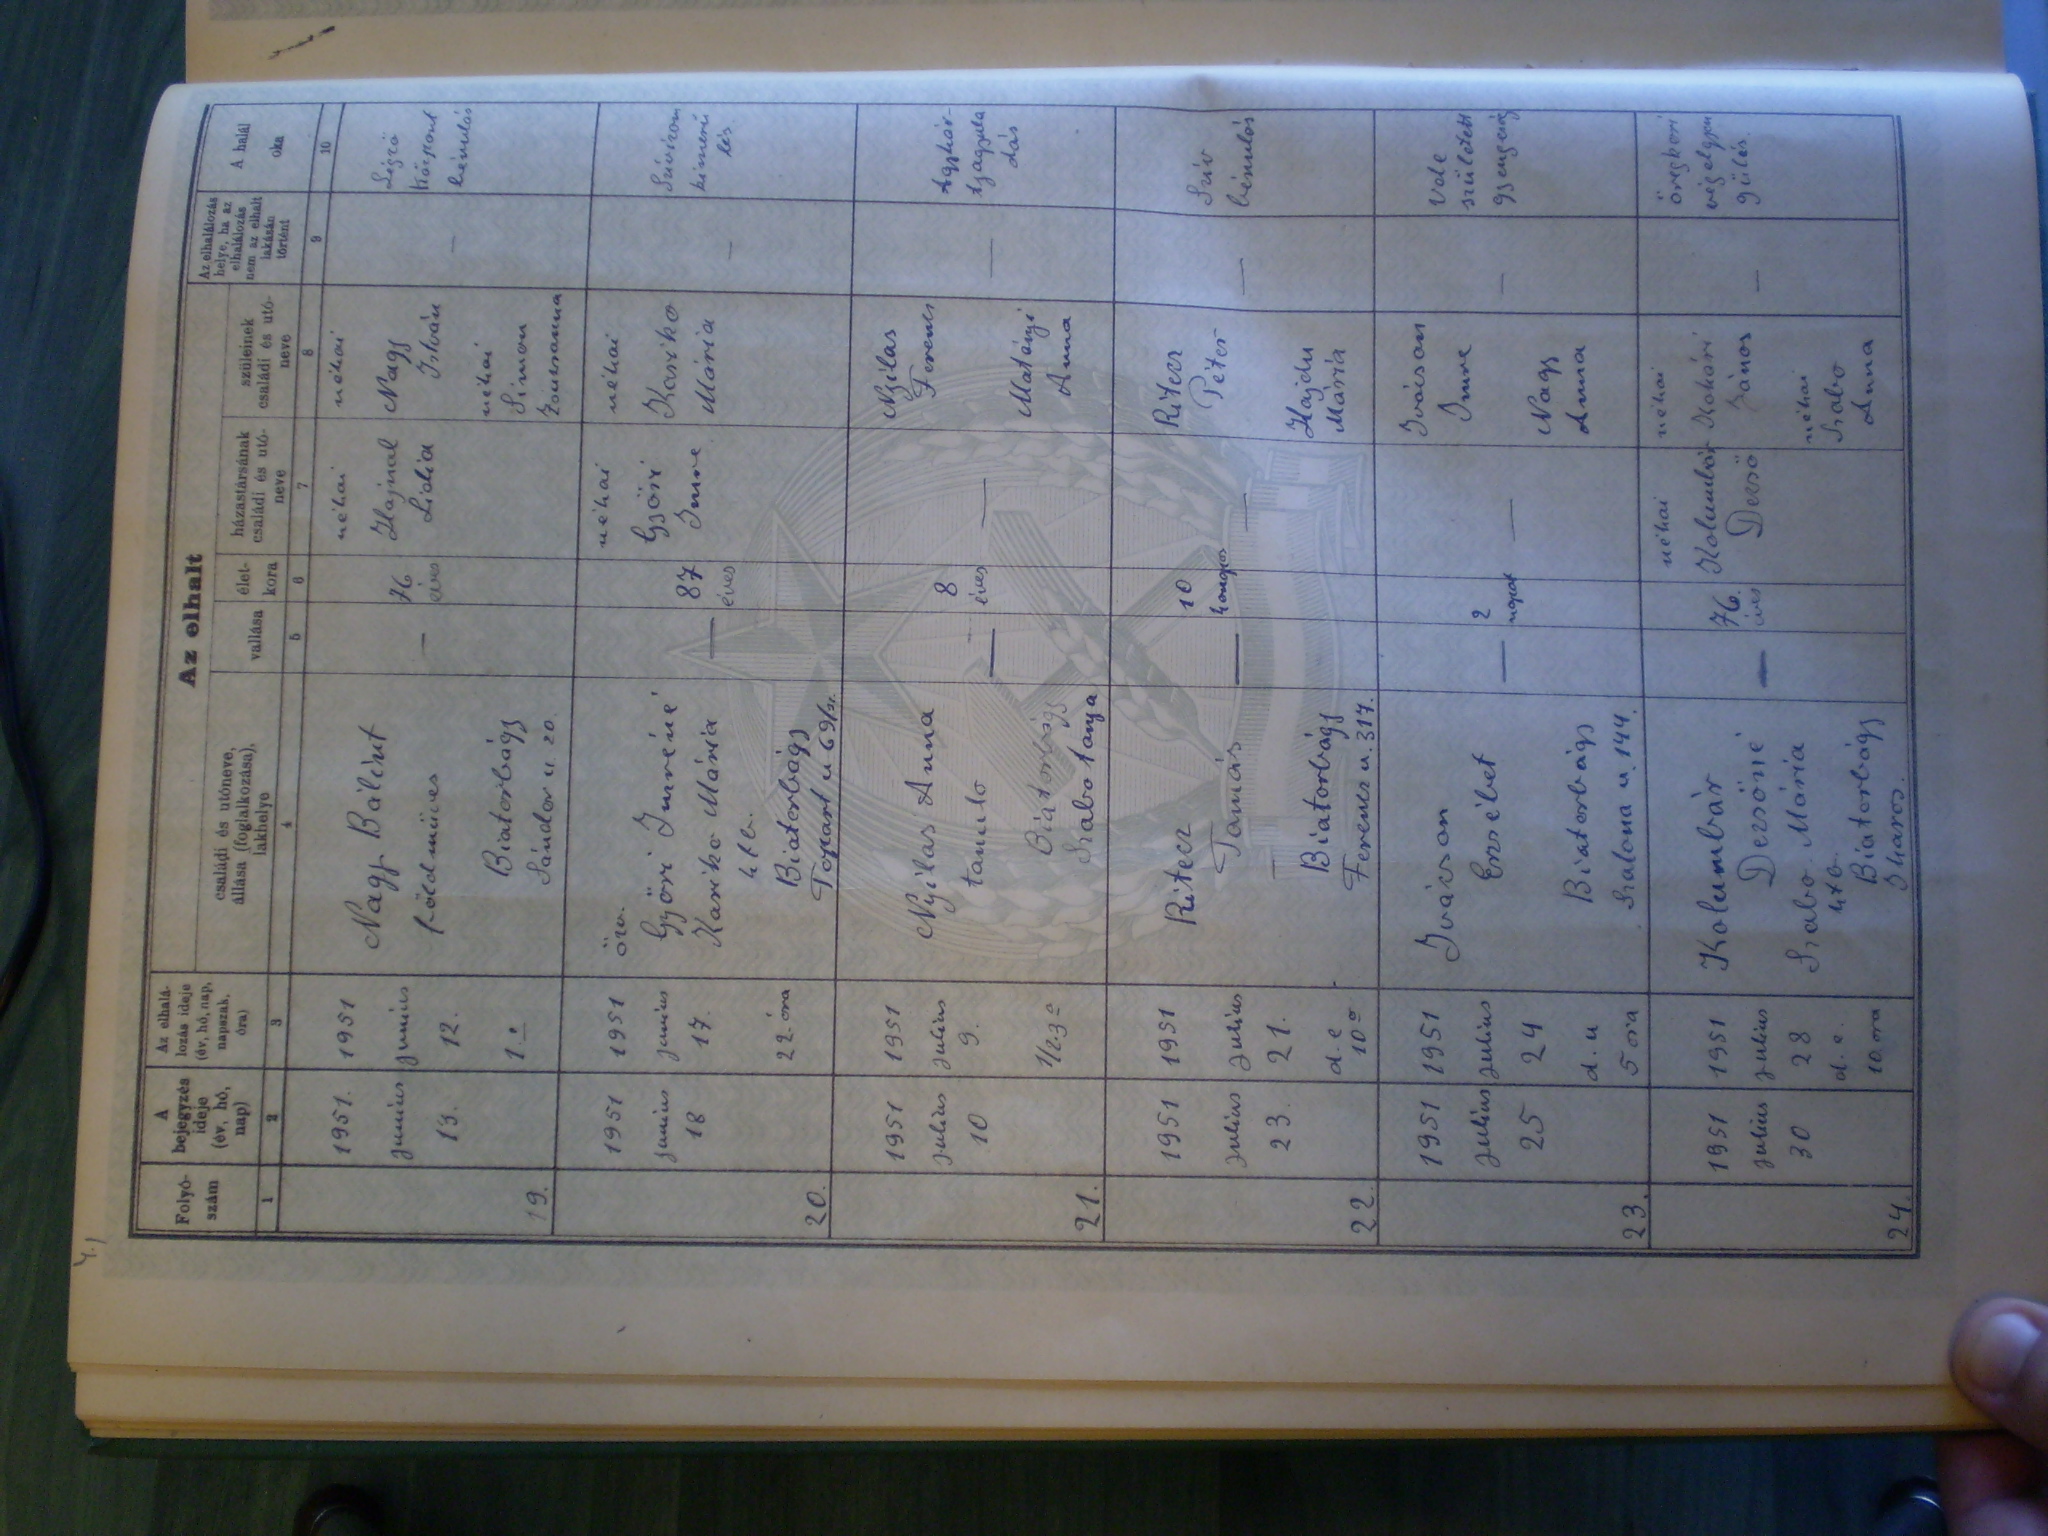 4.)
Az elhalt
Folyó-
szám
A
bejegyzés
ideje
(év, hó,
nap)
Az elhalá-
lozás ideje
(év, hó, nap,
napszak,
óra)
családi és utóneve,
állása (foglalkozása),
lakhelye
vallása
élet-
kora
házastársának
családi és utó-
neve
szüleinek
családi és utó-
neve
Az elhalálozás
helye, ha az
elhalálozás
nem az elhalt
lakásán
történt
A halál
oka
1 2 3 4 5 6 7 8 9 10
19.
1951.
junius
13.
1951
junius
12.
1.º
Nagy Bálint
földmüves
Biatorbágy
Sándor u. 20.
—
76
éves
néhai
Hajnal
Lidia
néhai
Nagy
István
néhai
Simon
Zsuzsanna
—
Légző
központ
bénulás
20.
1951
junius
18
1951
junius
17.
22 óra
özv.
Győri Imréné
Kariko Mária
htb.
Biatorbágy
—
87
éves
néhai
Győri
Imre
néhai
Kariko
Mária
—
Szívizom
kimerü
lés
21.
1951
julius
10
1951
julius
9.
1/2 3º
Nyilas Anna
tanuló
Biatorbágy
Szabo tanya
—
8
éves
—
Nyilas
Ferenc
Matányi
Anna
—
22.
1951
julius
23.
1951
julius
21.
d. e
10º
Ritecz
Tamás
Biatorbágy
Ferencz u. 317.
—
10
hónapos
—
Ritecz
Péter
Hajdu
Mária
—
Szív
bénulás
23.
1951
julius
25
1951
julius
24
d. u
5 óra
Iváncson
Erzsébet
Biatorbágy
Szalona u. 144.
—
2
napos
—
Iváncson
Imre
Nagy
Anna
—
Vele
született
gyengeség
24.
1951
julius
30
1951
julius
28
d. e.
10 óra
Kolumbár
Dezsőné
Szabo Mária
htb.
Biatorbágy
Iharos.
—
76.
éves
néhai
Kolumbár
Dezső
néhai
János
néhai
Szabo
Anna
—
öregkori
végelgyen
gülés